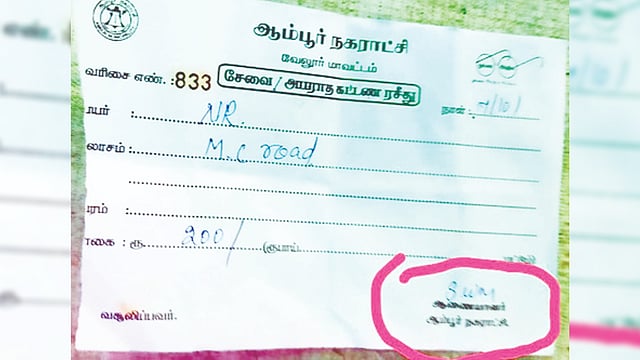 ஆம்பூர் நகராட்சி
வேலூர் மாவட்டம்
வரிசை எண். : 833 சேவை / அபராத கட்டண ரசீது
நாள் : 7/10/
யர் : NR.
லாசம் : M.C road
ரம் :
கை : ரூ. 200/ (ரூபாய்
வசூலிப்பவர்.
ஆணையாளர்
ஆம்பூர் நகராட்சி.